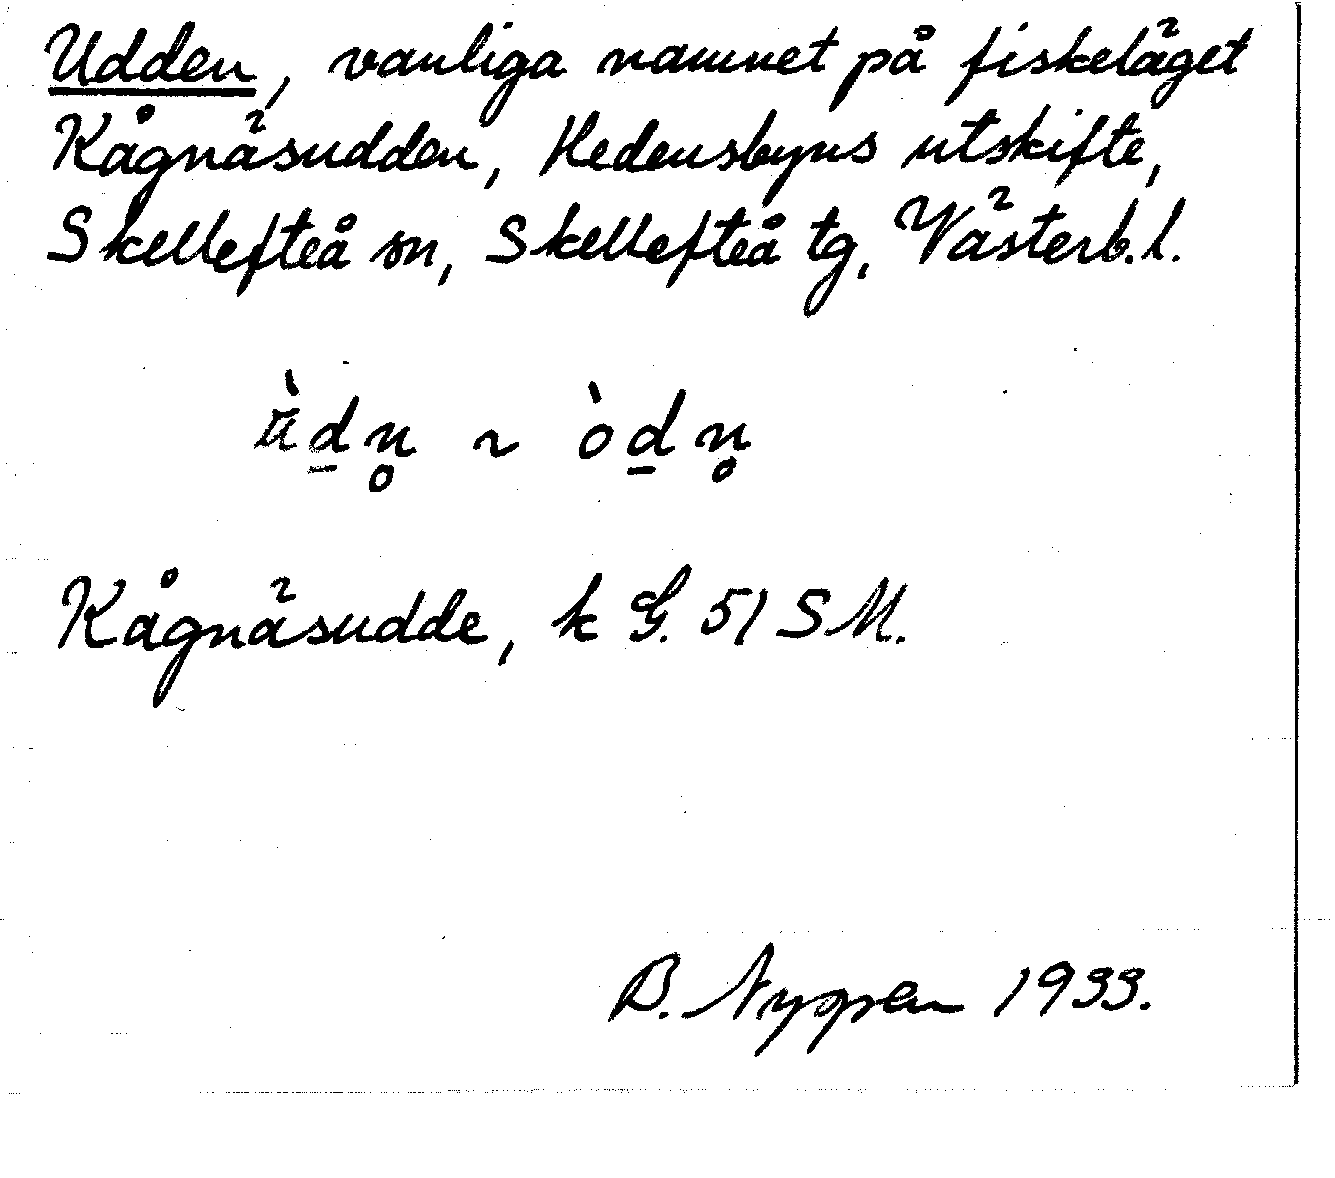 Udden, vanliga namnet på fiskeläget
Kågnäsudden, Hedensbyns utskifte,
Skellefteå sn, Skellefteå tg, Västerb.l.
òd̲n̥
Kågnäsudde, k G. 51 SM.
B. 1933.